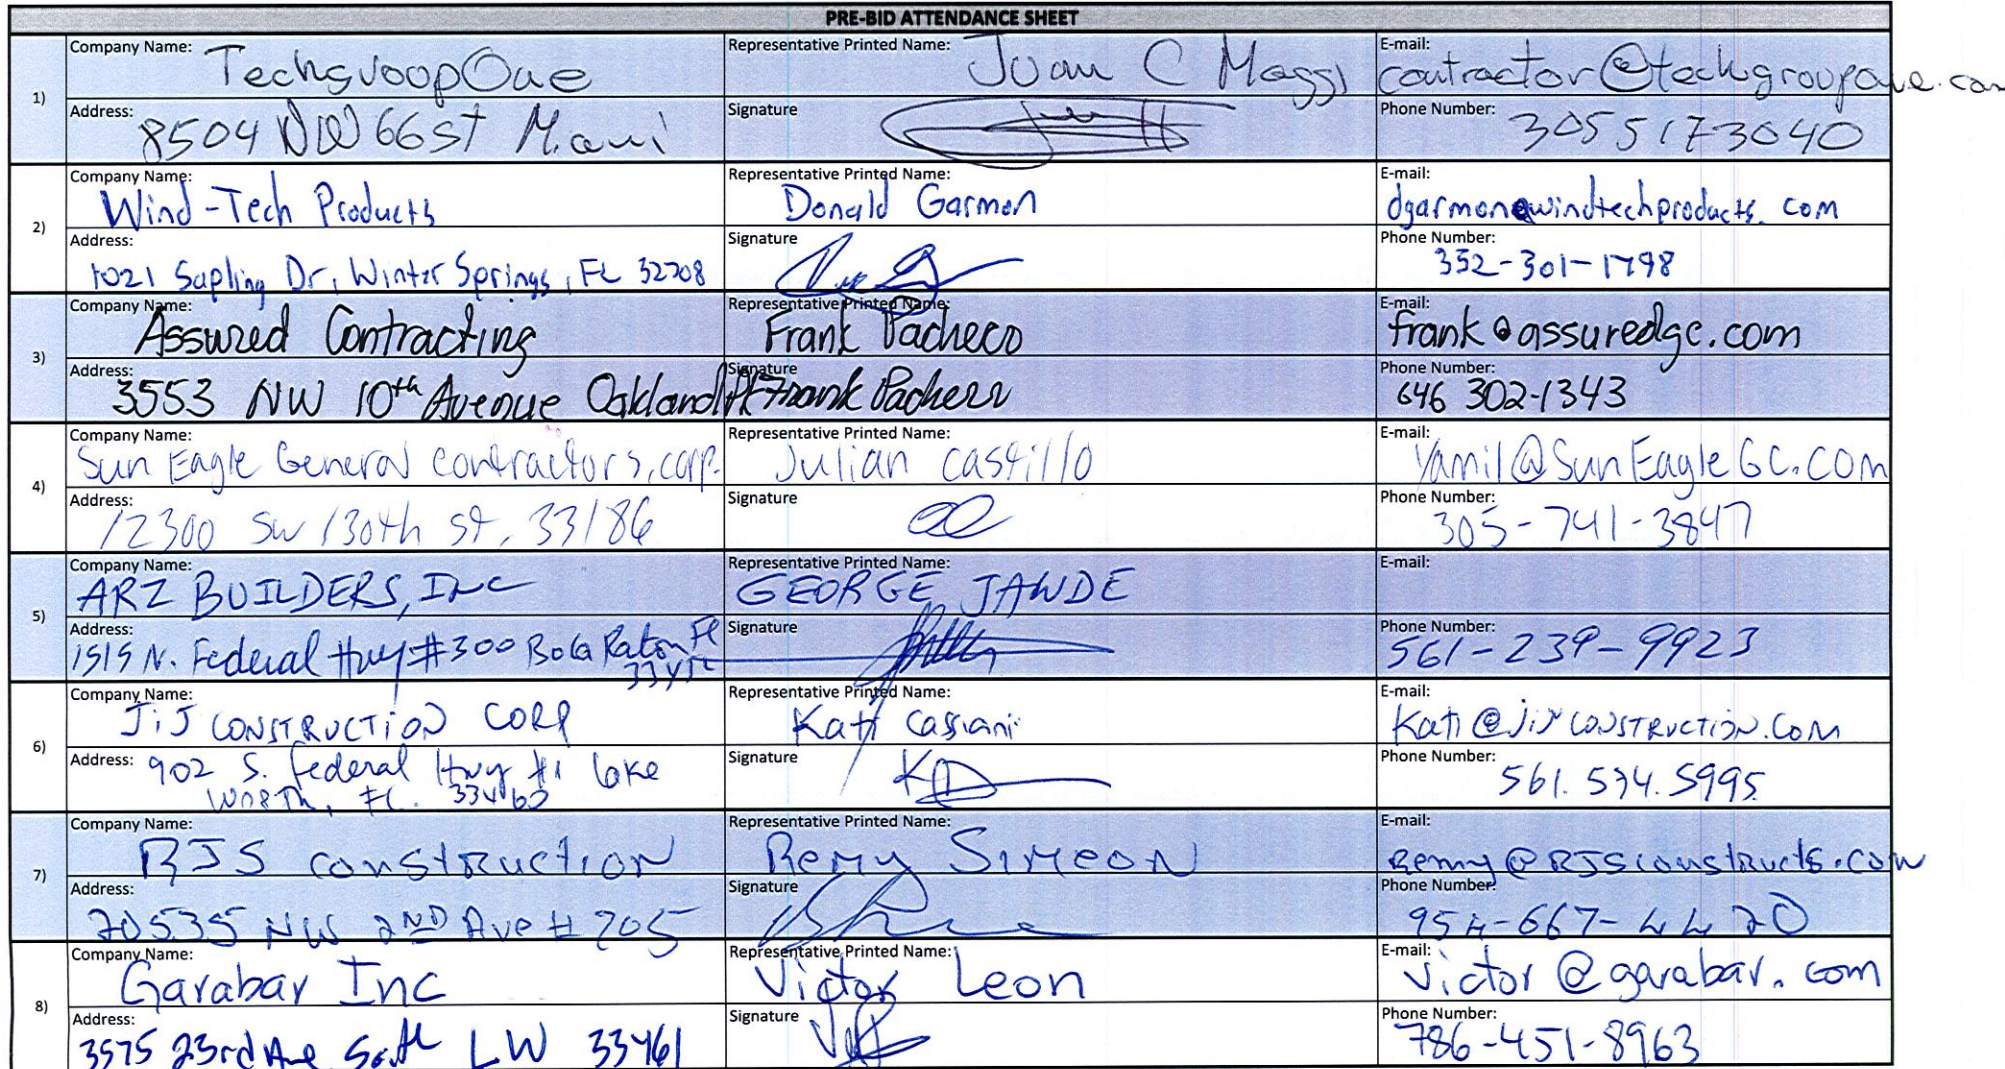 PRE-BID ATTENDANCE SHEET
1)
Company Name: TechgroopOne
Representative Printed Name: Juan C Maggi
E-mail: contractor@techgroupone.com
Address: 8504 NW 66st Miami
Signature
Phone Number: 3055173040
2)
Company Name: Wind-Tech Products
Representative Printed Name: Donald Garmon
E-mail: dgarmon@windtechproducts.com
Address: 1021 Sapling Dr, Winter Springs, FL 32708
Signature
Phone Number: 352-301-1798
3)
Company Name: Assured Contracting
Representative Printed Name: Frank Pacheco
E-mail: frank@assuredgc.com
Address: 3553 NW 10th Avenue Oakland Pk
Signature Frank Pacheco
Phone Number: 646 302-1343
4)
Company Name: Sun Eagle General contractors, corp.
Representative Printed Name: Julian castillo
E-mail: Yamil@SunEagleGC.COM
Address: 12300 SW 130th St, 33186
Signature
Phone Number: 305-741-3847
5)
Company Name: ARZ BUILDERS, INC
Representative Printed Name: GEORGE JAWDE
E-mail:
Address: 1515 N. Federal Hwy #300 Boca Raton Fl
Signature
Phone Number: 561-239-9923
6)
Company Name: JiJ CONSTRUCTION CORP
Representative Printed Name: Kati Cassiani
E-mail: Kati@JiJCONSTRUCTION.COM
Address: 902 S. Federal Hwy #1 lake
WORTH, FL. 33460
Signature
Phone Number: 561.574.5995
7)
Company Name: RJS construction
Representative Printed Name: Remy Simeon
E-mail: Remy@RJSconstructs.com
Address: 20535 NW 2ND Ave # 205
Signature
Phone Number: 954-667-4420
8)
Company Name: Garabar Inc
Representative Printed Name: Victor Leon
E-mail: victor@garabar.com
Address: 3575 23rd Ave South LW 33461
Signature
Phone Number: 786-451-8963